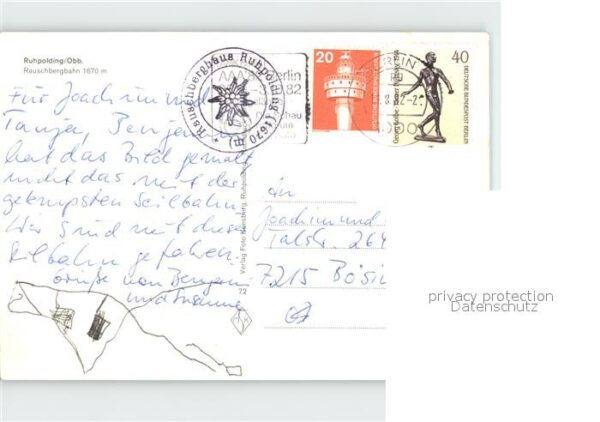 Ruhpolding/Obb.
Rauschbergbahn 1670 m
Für Joachim und
Tanja, Benjamin
hat das Bild gemalt
nicht das mit der
Seilbahn.
Wir sind mit dieser
Seilbahn gefahren.
Grüße von Benjamin
und
* Rauschberghaus Ruhpolding (1670 m)
20
DEUTSCHE BUNDESPOST BERLIN
40
DEUTSCHE BUNDESPOST BERLIN
BERLIN
Verlag Foto Ruhpolding
72
An
Joachim und
Talstr. 264
7215 Bösin
privacy protection
Datenschutz